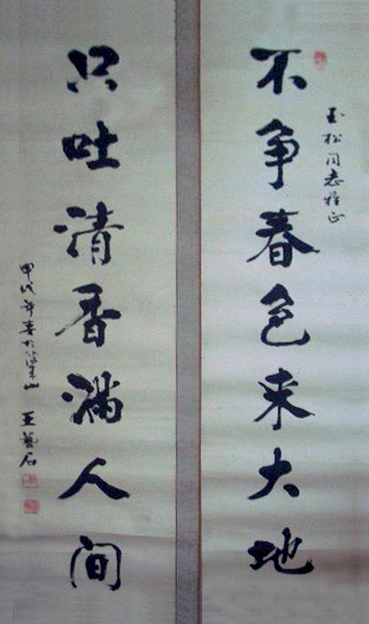 玉松同志雅正
不争春色来大地
只吐清香满人间
甲戌年春于梁山 王艺石